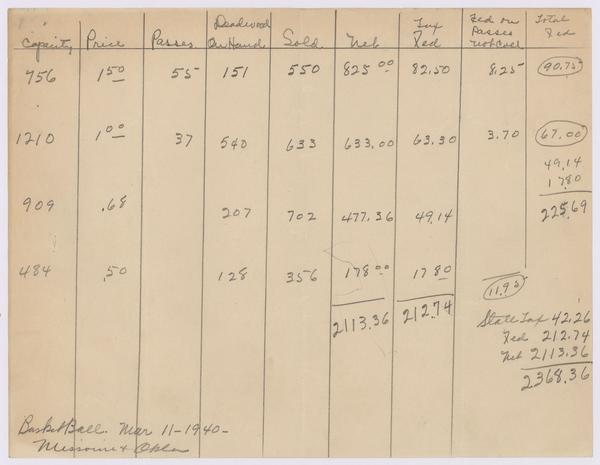 Capacity Price Passes Deadwood On Hand Sold Net Tax Fed Fed on Passes Not Coll Total Fed
756 1.50 55 151 550 825.00 82.50 8.25 90.75
1210 1.00 37 540 633 633.00 63.30 3.70 67.00
49.14
17.80
909 .68 207 702 477.36 49.14 225.69
484 .50 128 356 178.00 17.80 11.95
2113.36 212.74
State Tax 42.26
Fed 212.74
Net 2113.36
2368.36
BasketBall. Mar 11-1940-
Missouri & Okla